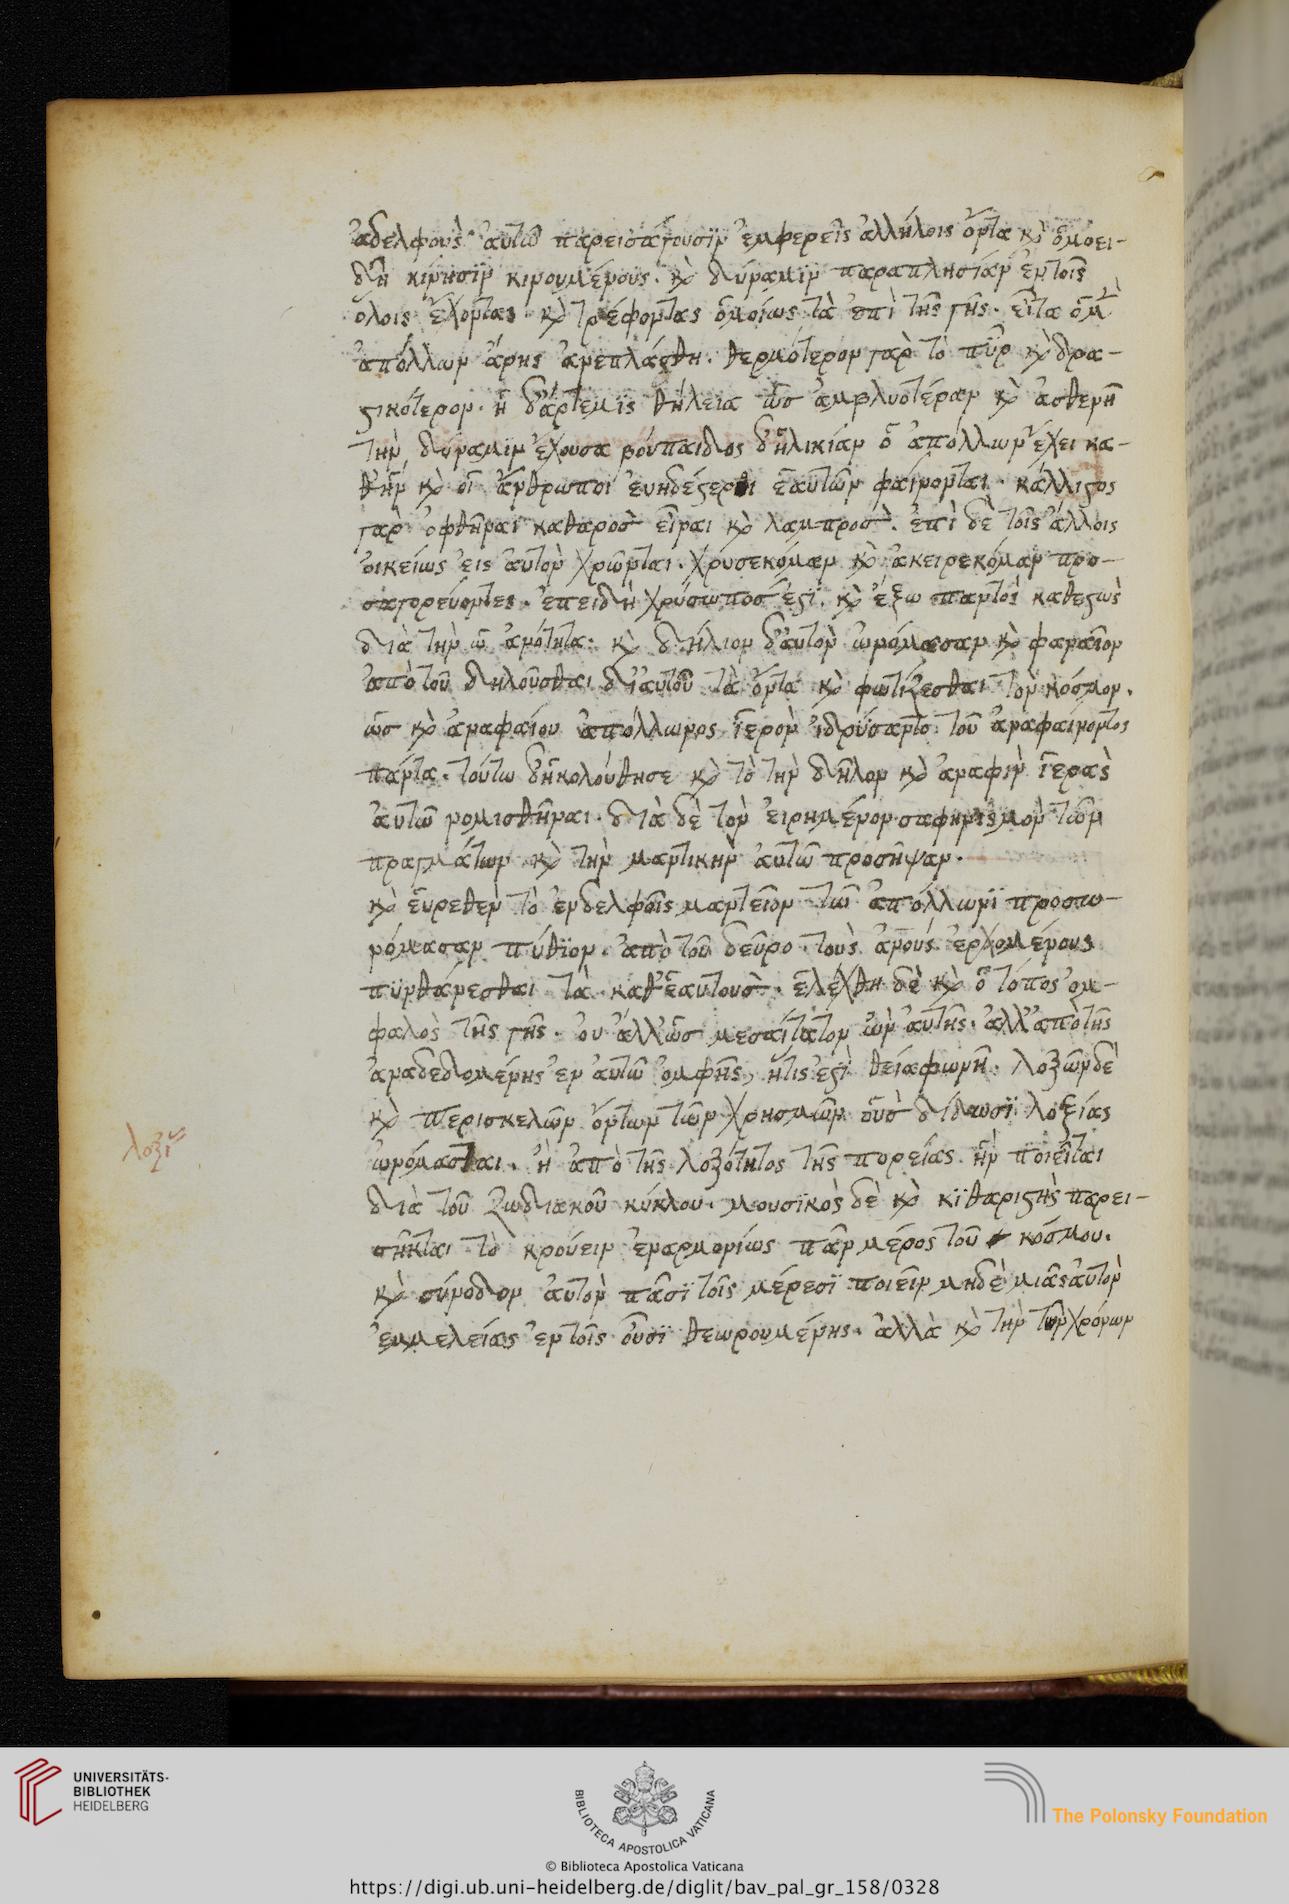 ἀδελφοὺς αὐτῶ παρεισάγουσϊν ἐμφερεῖς ἀλλήλοις ὄντα κὶ ὁμοει-
δῆ κίνησϊν κινουμένους. κὶ δύναμϊν παραπλησίαν ἐν τοῖς
ὅλοις ἔχοντας κὶ τρέφοντας ὁμοίως τὰ ἐπὶ τῆς γῆς. εἶτα ὁ μὲν
ἀπόλλων ἄρης ἀνεπλάσθη. θερμότερον γαρ τὸ πῦρ κὶ δρα-
στικότερον. ἡ δ' ἄρτεμϊς θήλεια ὡσ ἀμβλυοτέραν κὶ ἀσθενῆ
τὴν δύναμϊν ἔχουσα βούπαιδος δ' ἡλικίαν ὁ ἀπόλλων ἔχει κα-
θ' ἣν κὶ οἱ ἄνθρωποι ἐυηδέστεροι ἑαυτῶν φαίνονται. κάλλιστος
γαρ ὀφθῆναι καθαροσ εἶναι κὶ λαμπροσ. ἐπὶ δὲ τοῖς ἄλλοις
οἰκείως εἰς αὐτὸν χρῶνται. χρυσεκόμαν κὶ ἀκειρεκόμαν προ-
σαγορεύοντες. ἐπειδὴ χρυσωπόσ ἐστϊ. κὶ ἔξω παντὸς καθεστὼς
διὰ τὴν ὡ ἁνότητα. κὶ δήλιον δ' αὐτὸν ὠνόμασαν κὶ φαναῖον
ἀπὸ τοῦ δηλοῦσθαι δι' αὐτοῦ τὰ ὄντα κὶ φωτίζεσθαι τὸν κόσμον.
ὡσ κὶ ἀναφαίου ἀπόλλωνος ἱερὸν ἱδρύσαντο τοῦ ἀναφαίνοντος
πάντα. τούτω δ' ἠκολούθησε κὶ τὸ τὴν δῆλον κὶ ἀναφὴν ἱερὰς
αὐτῶ νομισθῆναι. διὰ δὲ τὸν εἰρημένον σαφηνισμὸν τῶν
πραγμάτων κὶ τὴν μαντικὴν αὐτῶ προσῆψαν.
κὶ εὑρεθὲν τὸ ἐν δελφοῖς μαντεῖον τῶ ἀπόλλωνϊ προσω-
νόμασαν πύθϊον. ἀπὸ τοῦ δεῦρο τοὺς ἁνους ἐρχομένους
πϋνθάνεσθαι τὰ καθ' ἑαυτουσ. ἐλέχθη δὲ κὶ ὁ τόπος ὀμ-
φαλὸς τῆς γῆς. οὐ ἀλλ' ὡσ μεσαίτατον ὢν αὐτῆς. ἀλλ' ἀπὸ τῆς
ἀναδεδομένης ἐν αὐτῶ ὀμφῆς, ἥτις ἐστὶ θεία φωνή. λοξῶν δὲ
κὶ περισκελῶν ὄντων τῶν χρησμῶν οὑσ δίδωσϊ λοξίας
ὠνόμασται. ἢ ἀπὸ τῆς λοξότητος τῆς πορείας ἣν ποιεῖται
διὰ τοῦ ζωδιακοῦ κύκλου. μουσϊκὸς δὲ κὶ κϊθαριστὴς παρει-
σῆκται τὸ κρούειν ἐναρμονίως πᾶν μέρος τοῦ κόσμου.
κὶ σύνοδον αὐτὸν πᾶσϊ τοῖς μέρεσϊ ποιεῖν μηδὲ μιᾶς αὐτὸν
ἐμμελείας ἐν τοῖς οὖσϊ θεωρουμένης. ἀλλὰ κὶ τὴν τῶν χρόνων
λοξί
UNIVERSITÄTS-
BIBLIOTHEK
HEIDELBERG
BIBLIOTECA APOSTOLICA VATICANA
© Biblioteca Apostolica Vaticana
The Polonsky Foundation
https://digi.ub.uni-heidelberg.de/diglit/bav_pal_gr_158/0328